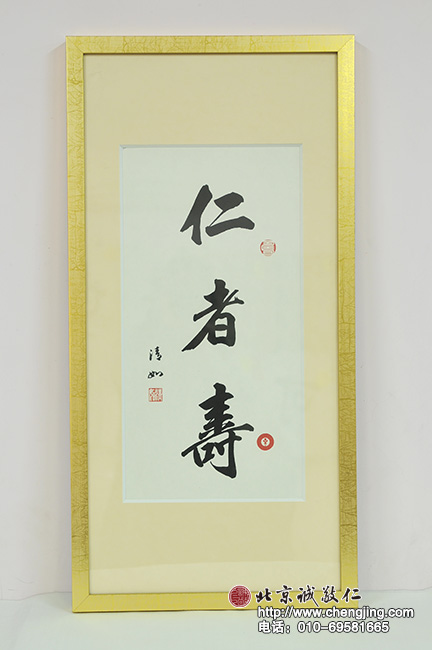 仁者壽
清如
北京诚敬仁
http://www.chengjing.com
电话：010-69581665